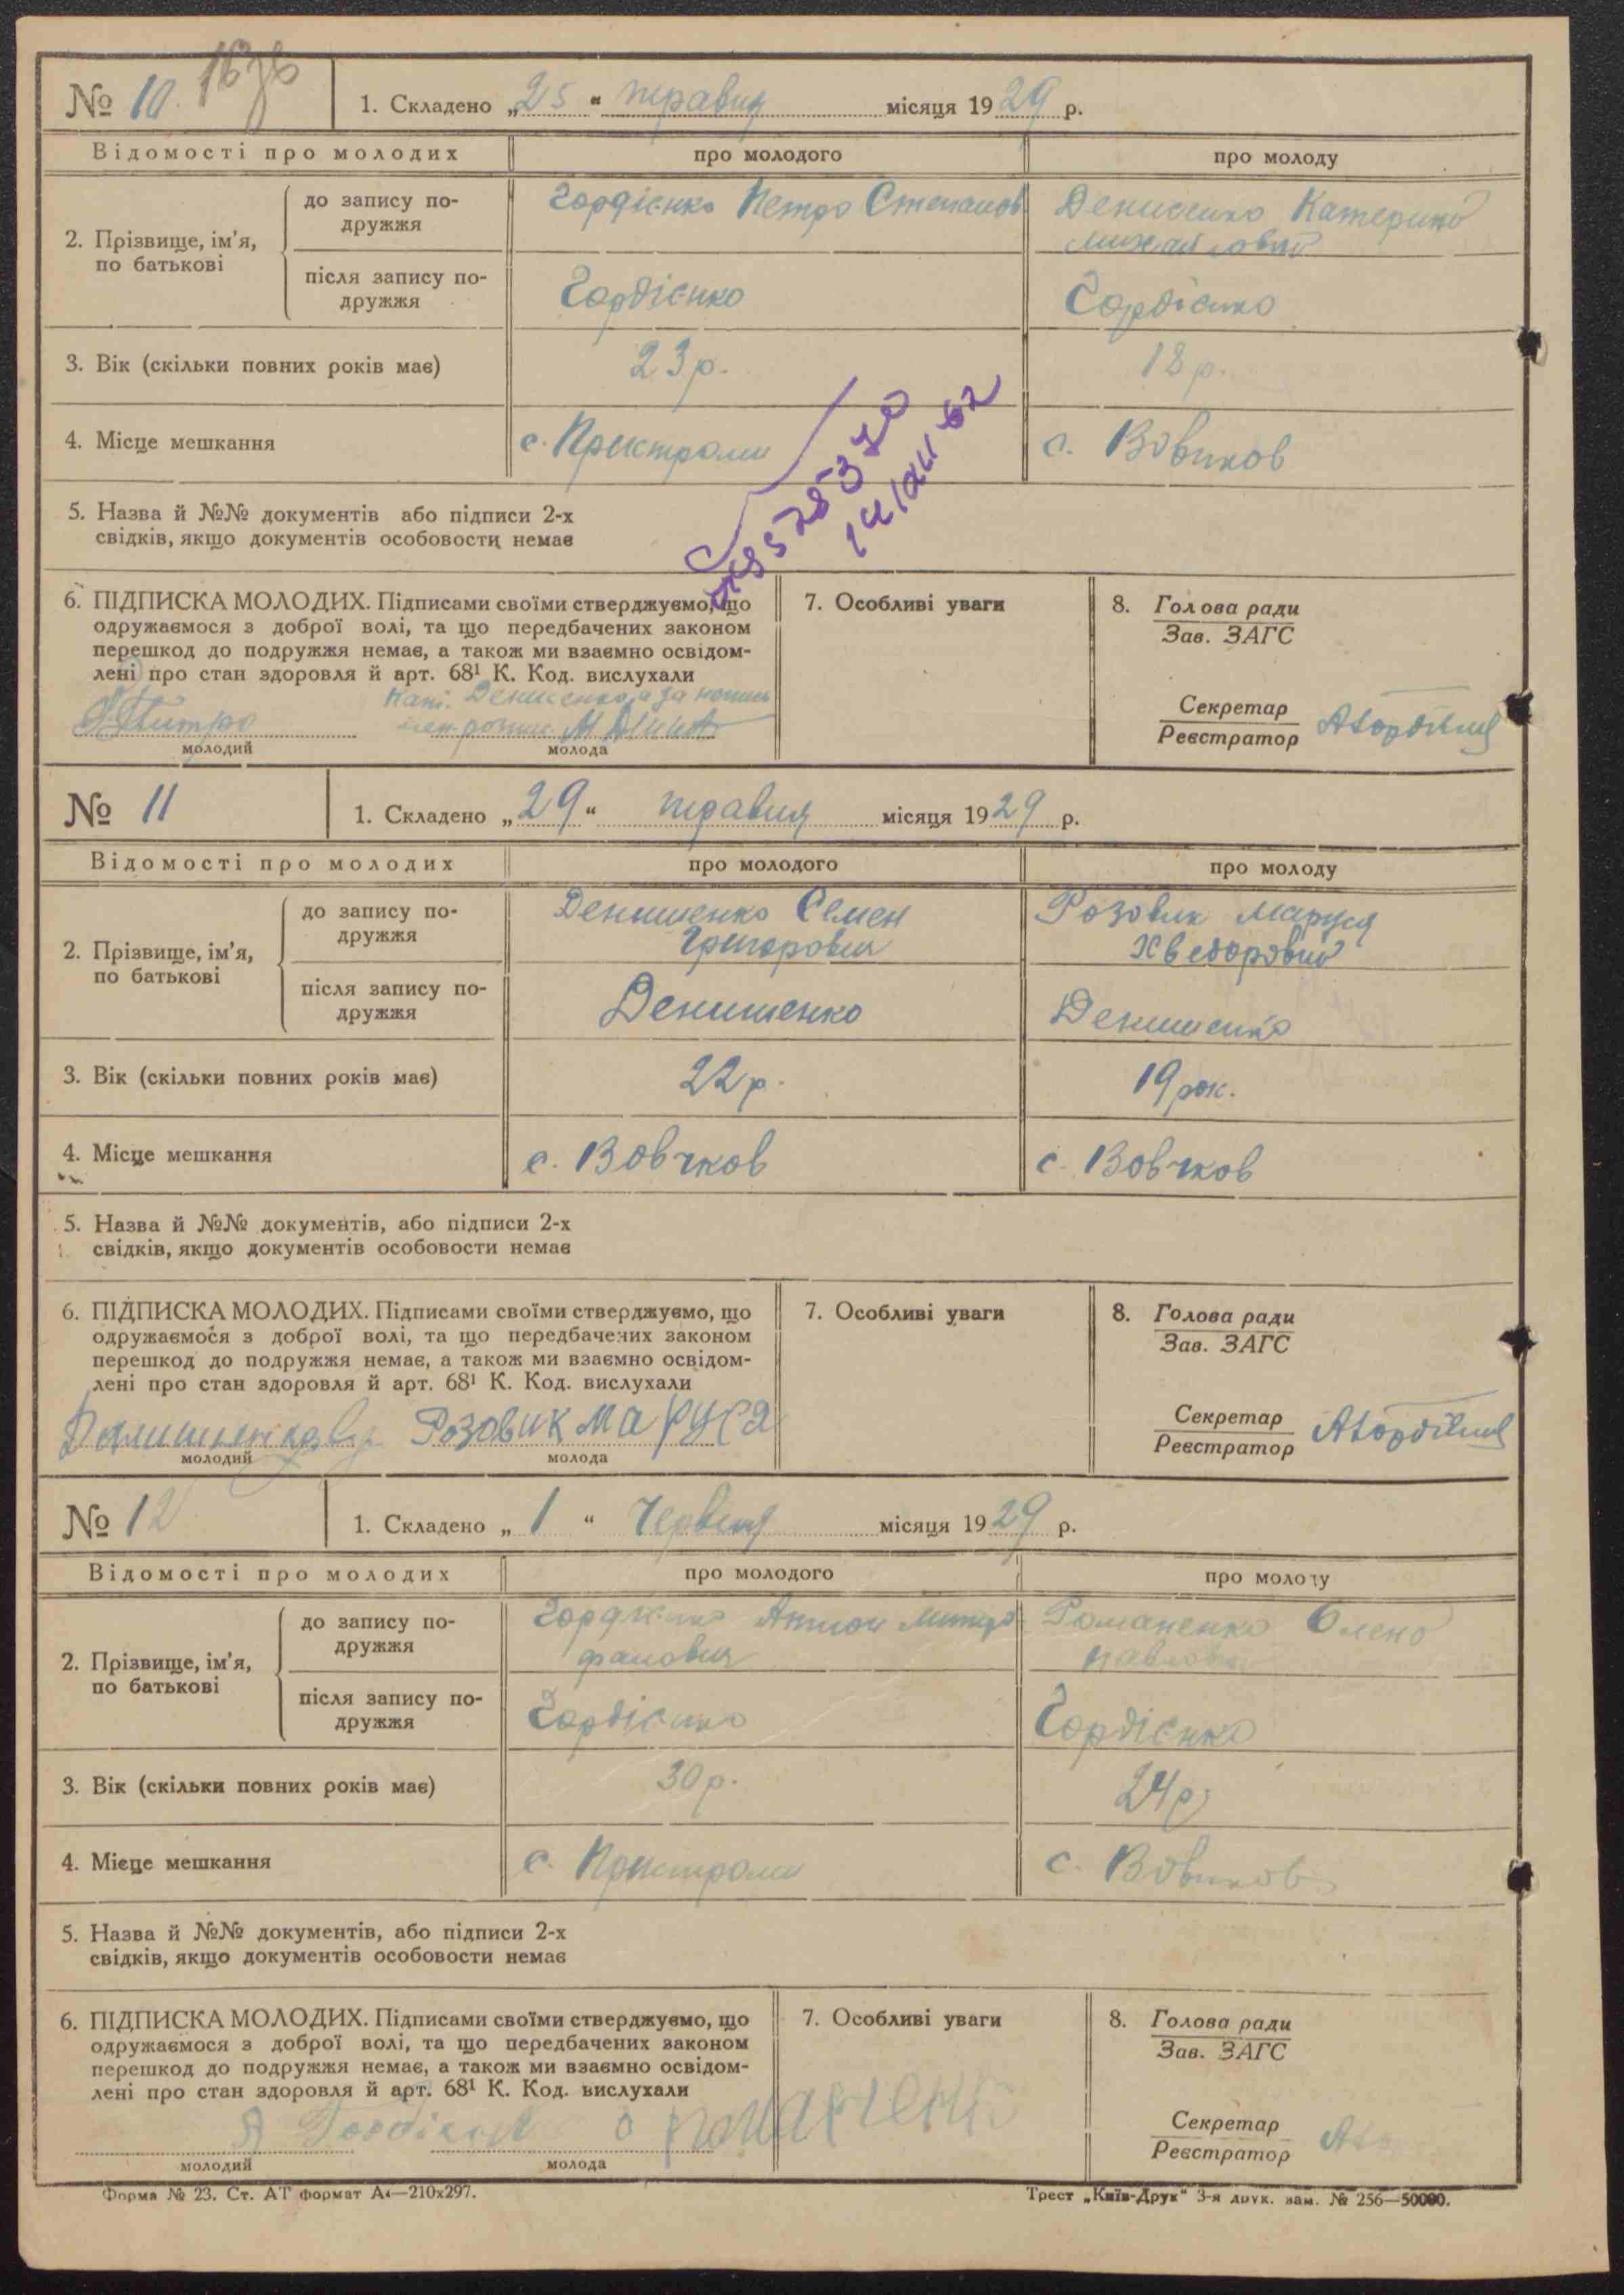 № 10. 163б
1. Складено „25“ травня місяця 1929 р.
Відомості про молодих про молодого про молоду
2. Прізвище, ім'я, по батькові
до запису подружжя
Гордієнко Петро Степанов Денисенко Катерина
Михайловна
після запису подружжя
Гордієнко Гордієнко
3. Вік (скільки повних років має) 23 р. 18 р.
4. Місце мешкання с. Пристроми с. Вовчков
5. Назва й №№ документів або підписи 2-х
свідків, якщо документів особовости немає
6. ПІДПИСКА МОЛОДИХ. Підписами своїми стверджуємо, що
одружаємося з доброї волі, та що передбачених законом
перешкод до подружжя немає, а також ми взаємно освідом-
лені про стан здоровля й арт. 68¹ К. Код. вислухали
Кат. Денисенко а за
молодий молода
7. Особливі уваги
8. Голова ради
Зав. ЗАГС
Секретар
Реєстратор
№ 11
1. Складено „29“ травня місяця 1929 р.
Відомості про молодих про молодого про молоду
2. Прізвище, ім'я, по батькові
до запису подружжя
Денишенко Семен Розовик Маруся
Григорович Хведоровна
після запису подружжя
Денишенко Денишенко
3. Вік (скільки повних років має) 22 р. 19 рок.
4. Місце мешкання с. Вовчков с. Вовчков
5. Назва й №№ документів, або підписи 2-х
свідків, якщо документів особовости немає
6. ПІДПИСКА МОЛОДИХ. Підписами своїми стверджуємо, що
одружаємося з доброї волі, та що передбачених законом
перешкод до подружжя немає, а також ми взаємно освідом-
лені про стан здоровля й арт. 68¹ К. Код. вислухали
Розовик Маруся
молодий молода
7. Особливі уваги
8. Голова ради
Зав. ЗАГС
Секретар
Реєстратор
№ 12
1. Складено „1“ Червня місяця 1929 р.
Відомості про молодих про молодого про молоду
2. Прізвище, ім'я, по батькові
до запису подружжя
Гордієнко Антон Митро Романенко Олена
фанович Павловна
після запису подружжя
Гордієнко Гордієнко
3. Вік (скільки повних років має) 30 р. 24 р.
4. Місце мешкання с. Пристроми с. Вовчков
5. Назва й №№ документів, або підписи 2-х
свідків, якщо документів особовости немає
6. ПІДПИСКА МОЛОДИХ. Підписами своїми стверджуємо, що
одружаємося з доброї волі, та що передбачених законом
перешкод до подружжя немає, а також ми взаємно освідом-
лені про стан здоровля й арт. 68¹ К. Код. вислухали
молодий молода
7. Особливі уваги
8. Голова ради
Зав. ЗАГС
Секретар
Реєстратор
Форма № 23. Ст. АТ формат А4—210х297.
Трест „Київ-Друк“ 3-я друк. зам. № 256—50000.